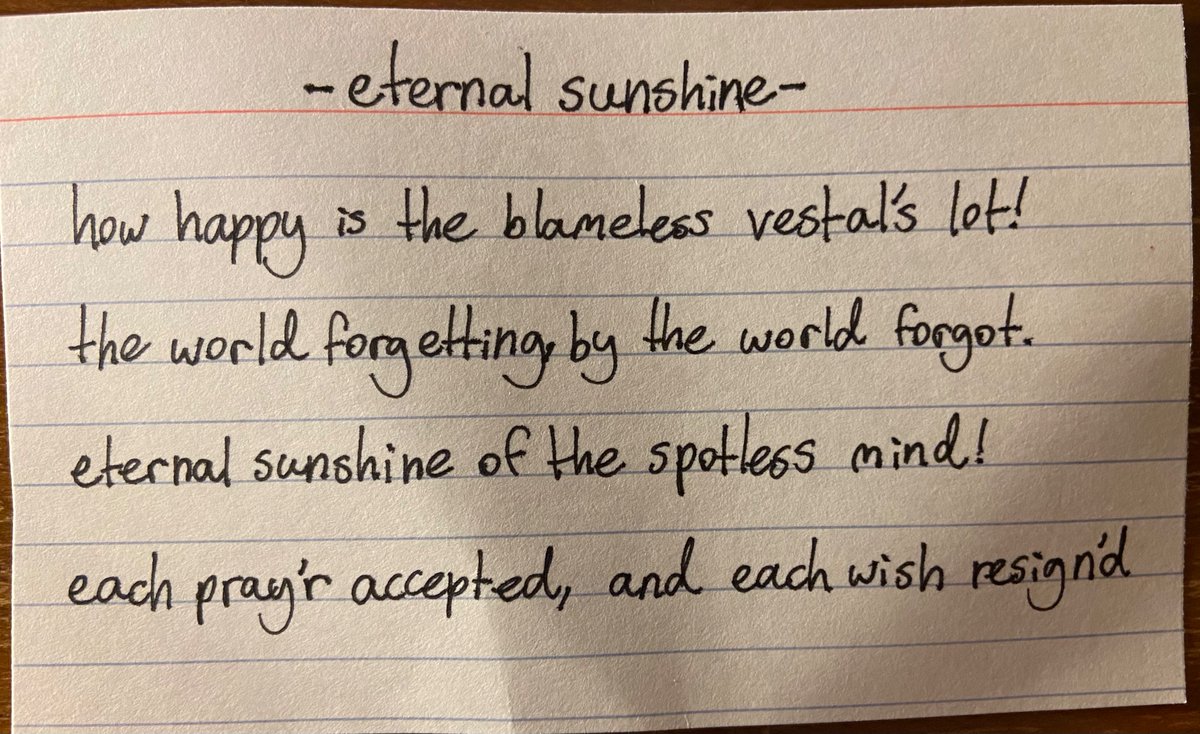 -eternal sunshine-
how happy is the blameless vestal's lot!
the world forgetting, by the world forgot.
eternal sunshine of the spotless mind!
each pray'r accepted, and each wish resign'd